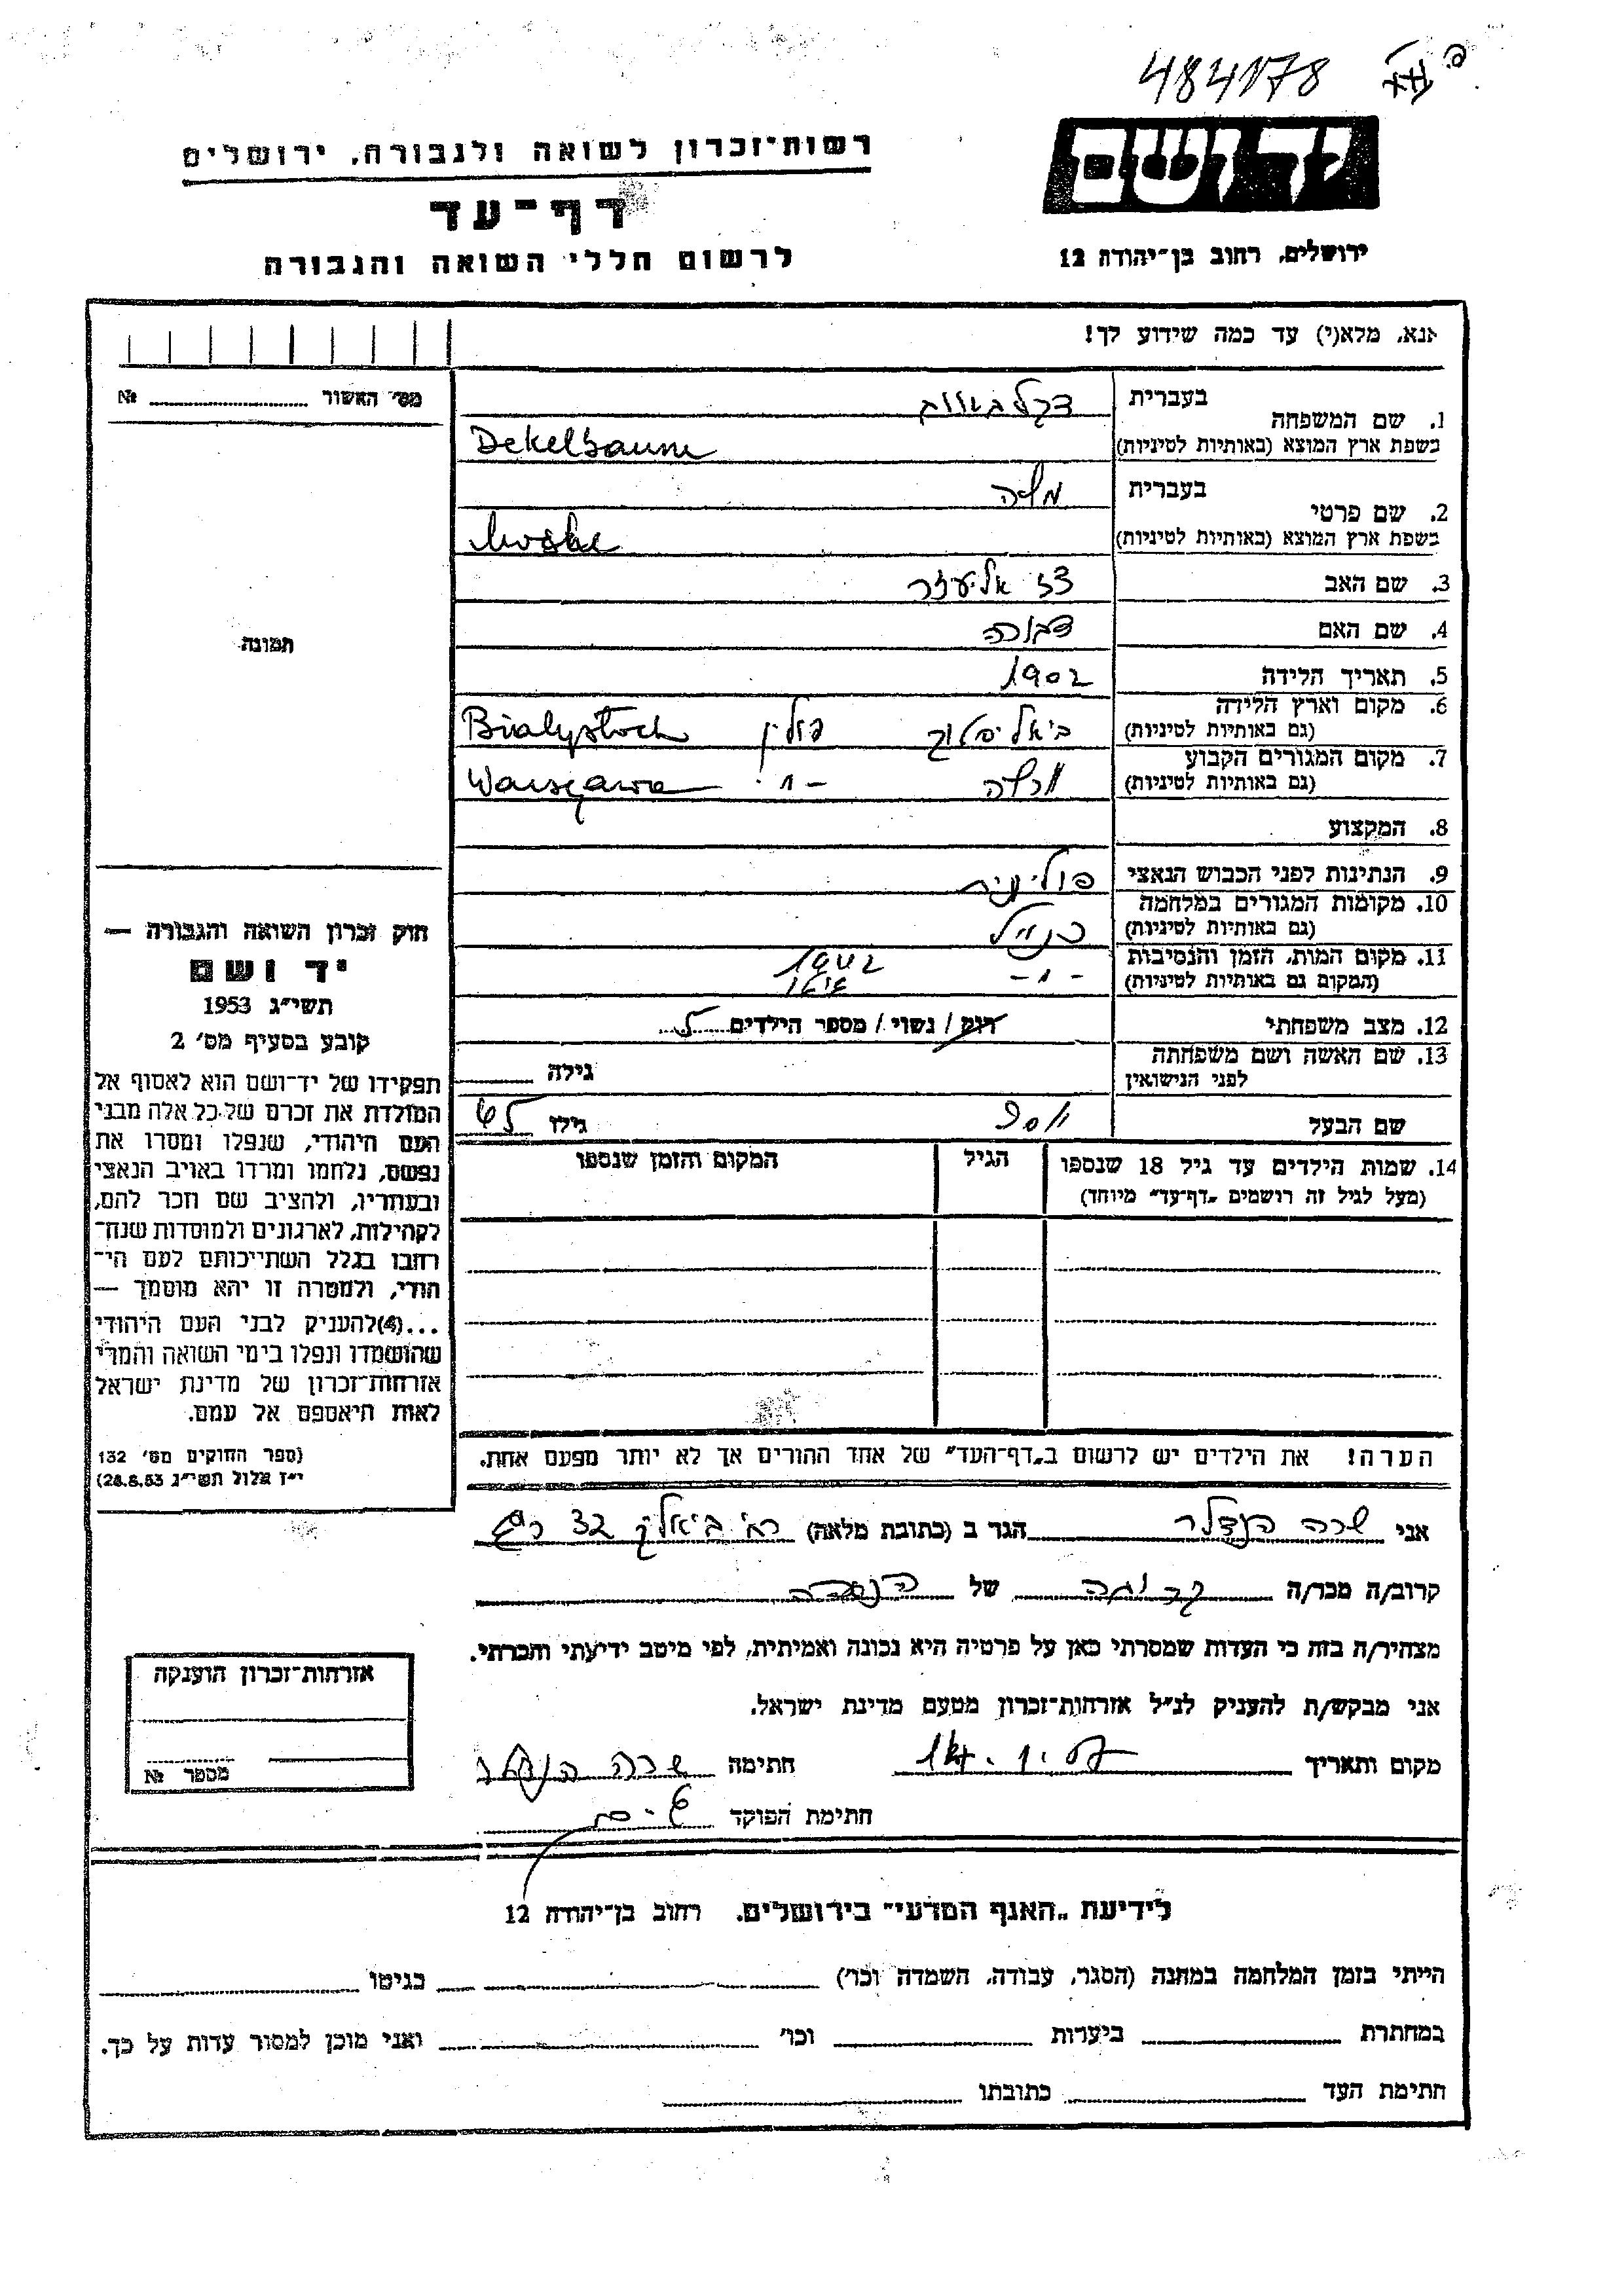 484178
יד ושם
רשות־זכרון לשואה ולגבורה, ירושלים
דף־עד
לרשום חללי השואה והגבורה
ירושלים, רחוב בן־יהודה 12
אנא, מלא(י) עד כמה שידוע לך!
מס׳ האשור № 
1. שם המשפחה בעברית דקלבאום
בשפת ארץ המוצא (באותיות לטיניות) Dekelbaum
2. שם פרטי בעברית
בשפת ארץ המוצא (באותיות לטיניות)
3. שם האב אליעזר
4. שם האם דבורה
5. תאריך הלידה 1902
6. מקום וארץ הלידה
(גם באותיות לטיניות) ביאליסטוק פולין Bialystock
7. מקום המגורים הקבוע
(גם באותיות לטיניות) ורשה -"- Warszawa
8. המקצוע
9. הנתינות לפני הכבוש הנאצי פולינית
10. מקומות המגורים במלחמה
(גם באותיות לטיניות) כנ״ל
11. מקום המות, הזמן והנסיבות
(המקום גם באותיות לטיניות) -"- 1942
12. מצב משפחתי רווק / נשוי / מספר הילדים
13. שם האשה ושם משפחתה
לפני הנישואין גילה
שם הבעל יוסף גילו 45
14. שמות הילדים עד גיל 18 שנספו הגיל המקום והזמן שנספו
(מעל לגיל זה רושמים „דף־עד״ מיוחד)
הערה! את הילדים יש לרשום ב„דף־העד״ של אחד ההורים אך לא יותר מפעם אחת.
תמונה
חוק זכרון השואה והגבורה —
יד ושם
תשי״ג 1953
קובע בסעיף מס׳ 2
תפקידו של יד־ושם הוא לאסוף אל
המולדת את זכרם של כל אלה מבני
העם היהודי, שנפלו ומסרו את
נפשם, נלחמו ומרדו באויב הנאצי
ובעוזריו, ולהציב שם וזכר להם,
לקהילות, לארגונים ולמוסדות שנח־
רחבו בגלל השתייכותם לעם הי־
הודי, ולמטרה זו יהא מוסמך —
...(4)להעניק לבני העם היהודי
שהושמדו ונפלו בימי השואה והמרי
אזרחות־זכרון של מדינת ישראל
לאות היאספם אל עמם.
(ספר החוקים מס׳ 132
י״ז אלול תשי״ג 28.8.53)
אני שרה הנדלר הגר ב (כתובת מלאה) רח׳ ביאליק 32 ר״ג
קרוב/ה מכר/ה קרובה של הנספה
מצהיר/ה בזה כי העדות שמסרתי כאן על פרטיה היא נכונה ואמיתית, לפי מיטב ידיעתי והכרתי.
אני מבקש/ת להעניק לנ״ל אזרחות־זכרון מטעם מדינת ישראל.
מקום ותאריך חתימה שרה הנדלר
חתימת הפוקד
אזרחות־זכרון הוענקה
מספר №
לידיעת „האגף המדעי״ בירושלים, רחוב בן־יהודה 12
הייתי בזמן המלחמה במחנה (הסגר, עבודה, השמדה וכו׳) בגיטו
במחתרת ביערות וכו׳ ואני מוכן למסור עדות על כך.
חתימת העד כתובתו